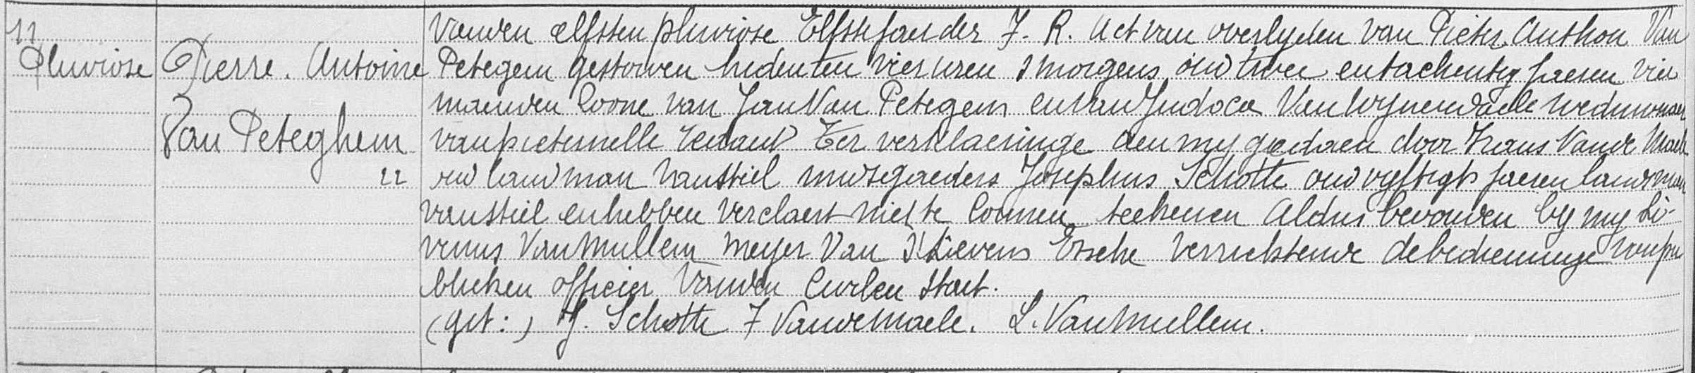 11
Pluviose
Pierre. Antoine
Van Peteghem
22
Vanden elfsten pluviose Elfste jaer der F. R. Act van overlyden van Pieter Anthon Van
Petegem gestorven heden ten vier uren smorgens, oud twee entachentig jaeren vier
maenden Soone van Jan Van Petegem en van Judoca Van Wynendaele weduwnaer
van pieternelle Ter verklaeringe aen my gedaen door Frans Vande Maele
oud landman Vanstiel Josephus Schotte oud vyftigh jaeren landman
vanstiel en hebben verclaert niet te Connen teekenen Aldus bevonden by my Li-
venus Van Mullem Meyer Van St Lievens Essche Verrichtende de bedieninge van pu
blieken officier Vanden Civilen Staet.
(get:) J. Schotte F Vandemaele. L. Van Mullem.